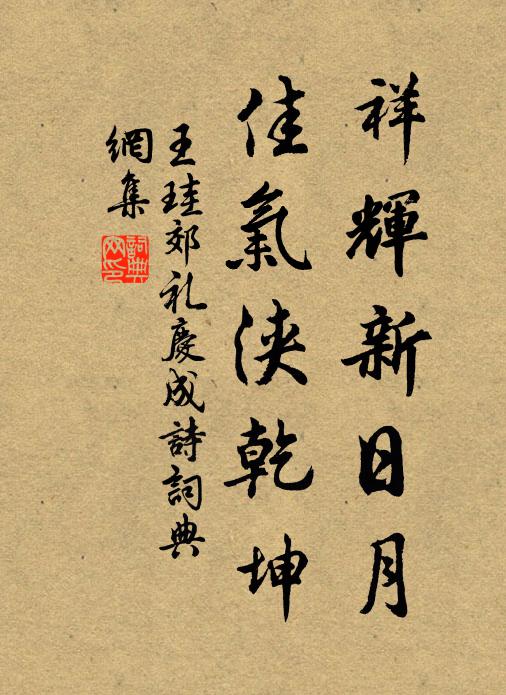 祥輝新日月
佳氣浹乾坤
王珪郊礼慶成詩詞典
網集
詞典网印